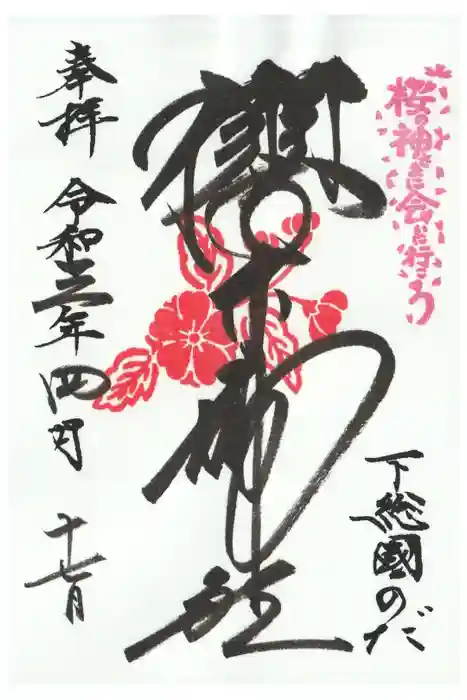 桜の神さまに会いに行こう
下総國のだ
櫻木神社
奉拝 令和三年四月 十七日